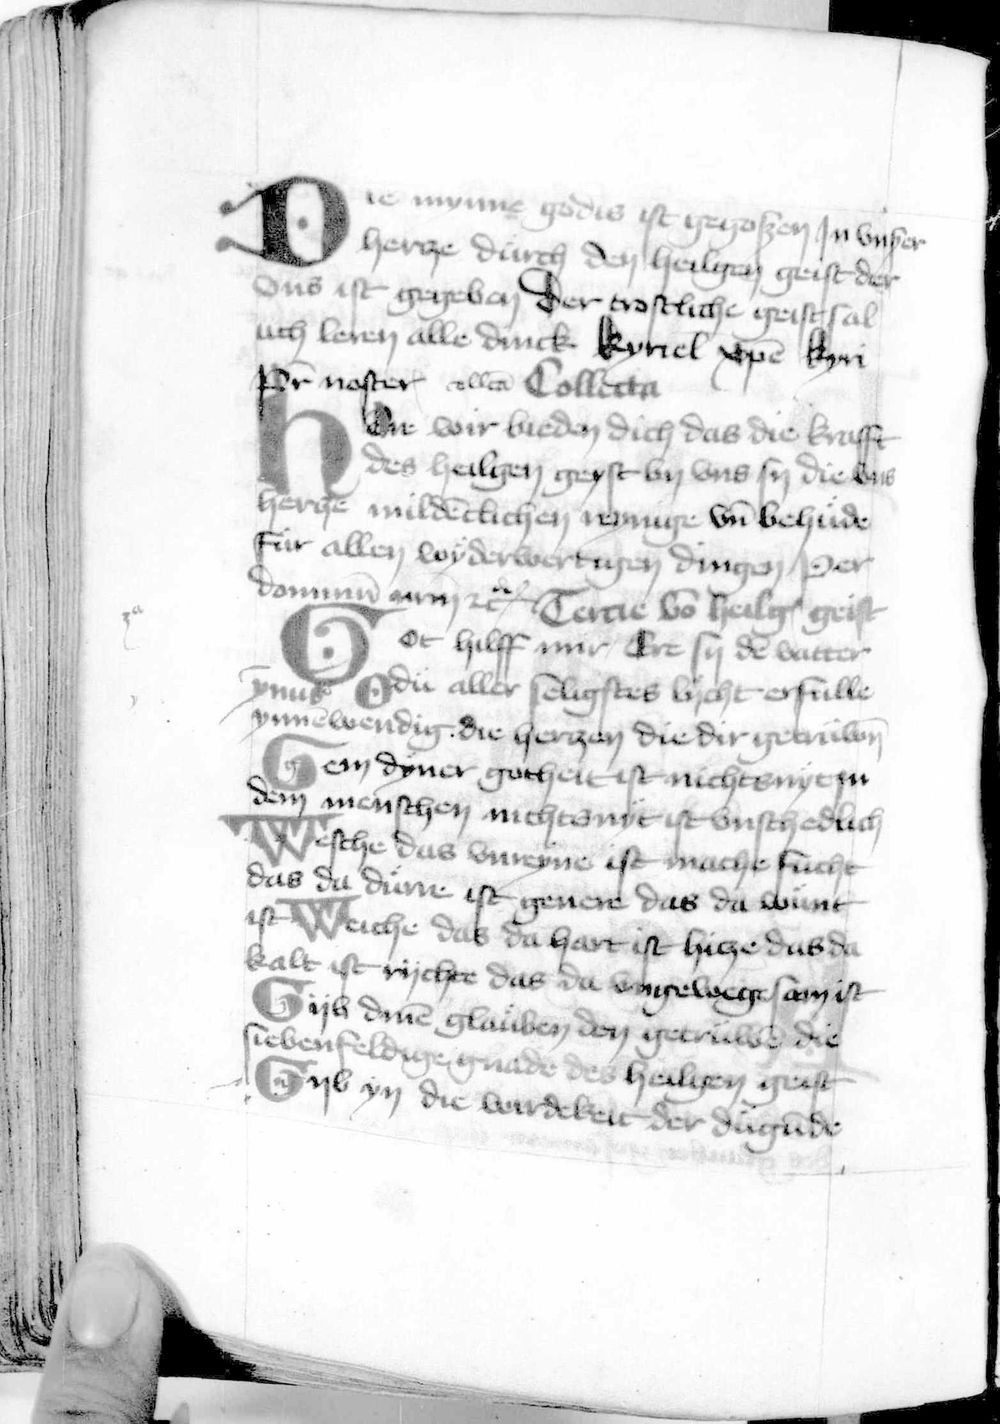 Die mynne godis ist gegoszen In vnszer
hercze dürch den heilgen geist der
vns ist gegeben Der trostliche geist sal
uch leren alle dinck kyriel xp̄e kyri
Pr̄ noster Collecta
HEre wir bieden dich das die krafft
des heilgen geyst by vns sy die vns
hercze mildēclichen reynige vn̄ behüde
für allen wÿderwertigen dingen Per
dominū nrm̄ Tercie vō heilgē geist
3ᵃ
GOt hilff mir Ere sy dē vatter
ymus O dü aller seligstes lÿcht erfülle
ynnēwendig die herczen die dir getrüwn̄
Gem dÿner gotheit ist nichtsnÿt in
dem menschen nichtsnÿt ist vnschedlich
Wesche das vnreyne ist mache fücht
das da dürre ist genere das da wünt
ist Weiche das da hart ist hicze das da
kalt ist rÿchte das da vngewegesam ist
Gijb dinē glaüben den getrüwē die
siebenfeldige gnade des heilgen geist
Gijb yn die wirdekeit der dügūde